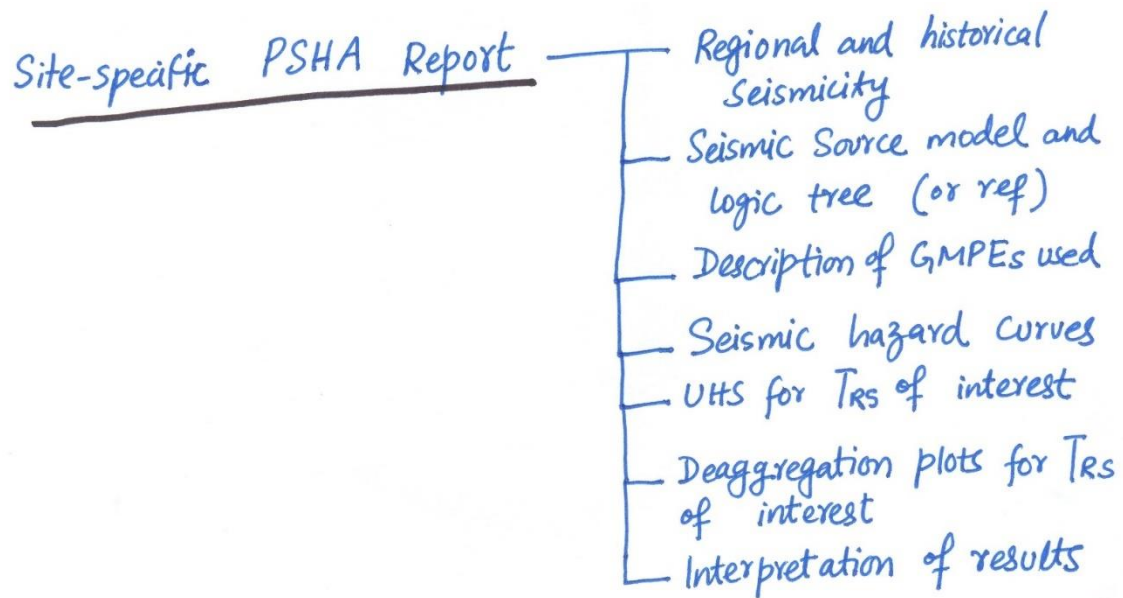 Site-specific PSHA Report
Regional and historical
Seismicity
Seismic Source model and
logic tree (or ref)
Description of GMPEs used
Seismic hazard curves
UHS for TRS of interest
Deaggregation plots for TRS
of interest
Interpretation of results